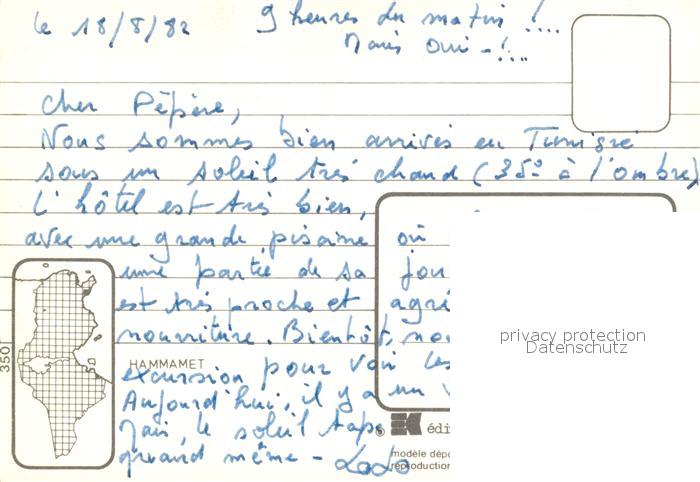 le 18/8/82
9 heures du matin !....
Mais oui - !...
Cher Pépère,
Nous sommes bien arrivés en Tunisie
sous un soleil très chaud (35° à l'ombre)
L'hôtel est très bien,
avec une grande piscine où
une partie de sa jou
est très proche et agré
nourriture. Bientôt, no
excursion pour voir les
Aujourd'hui, il y a un v
Mais, le soleil tape
quand même - LoLo
HAMMAMET
350
privacy protection
Datenschutz
édi
modèle dépo
reproduction